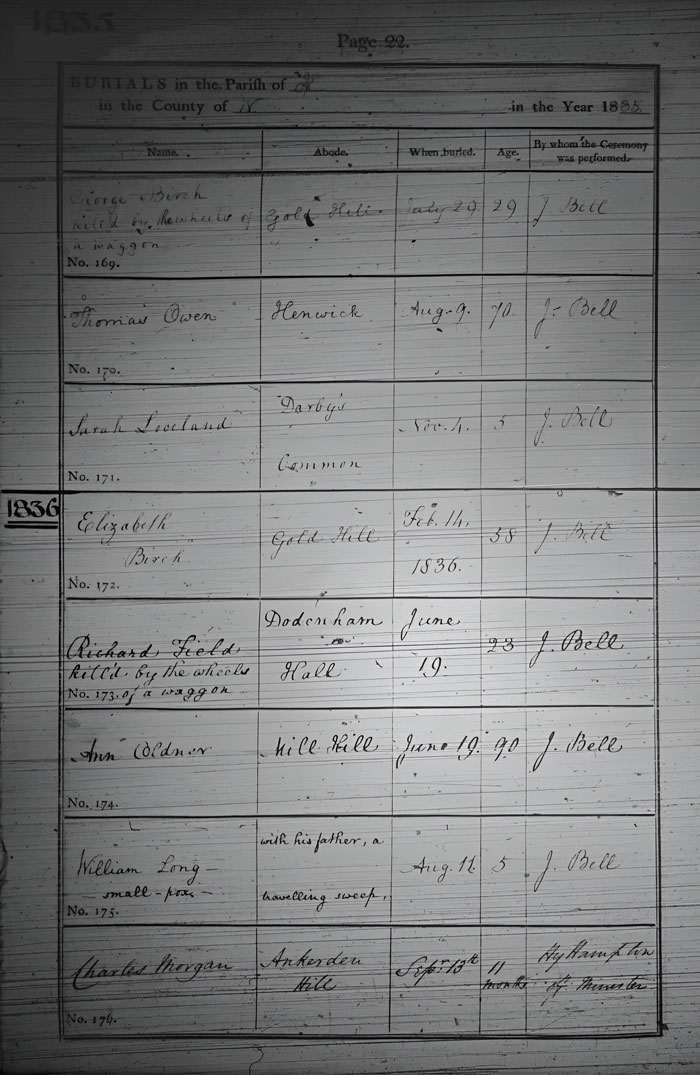 1835
Page 22.
BURIALS in the Parish of
in the County of W in the Year 1835.
Name. Abode. When buried. Age. By whom the Ceremony was performed.
George Birch
kill'd by the wheels of
a waggon
Gold Hill July 29. 29 J. Bell
No. 169.
Thomas Owen Henwick Aug. 9. 70. J. Bell
No. 170.
Sarah Loveland Darby's
Common
Nov. 4. 5 J. Bell
No. 171.
1836
Elizabeth
Birch
Gold Hill Feb. 14,
1836.
58 J. Bell
No. 172.
Richard Field
kill'd by the wheels
No. 173. of a waggon
Dodenham
Hall
June
19.
23 J. Bell
Ann Mill Hill June 19. 90 J. Bell
No. 174.
William Long
small-pox
with his father, a
travelling sweep,
Aug. 11. 5 J. Bell
No. 175.
Charles Morgan Ankerden
Hill
Sepr. 13th 11
months
Hy Hampton
Minister
No. 176.